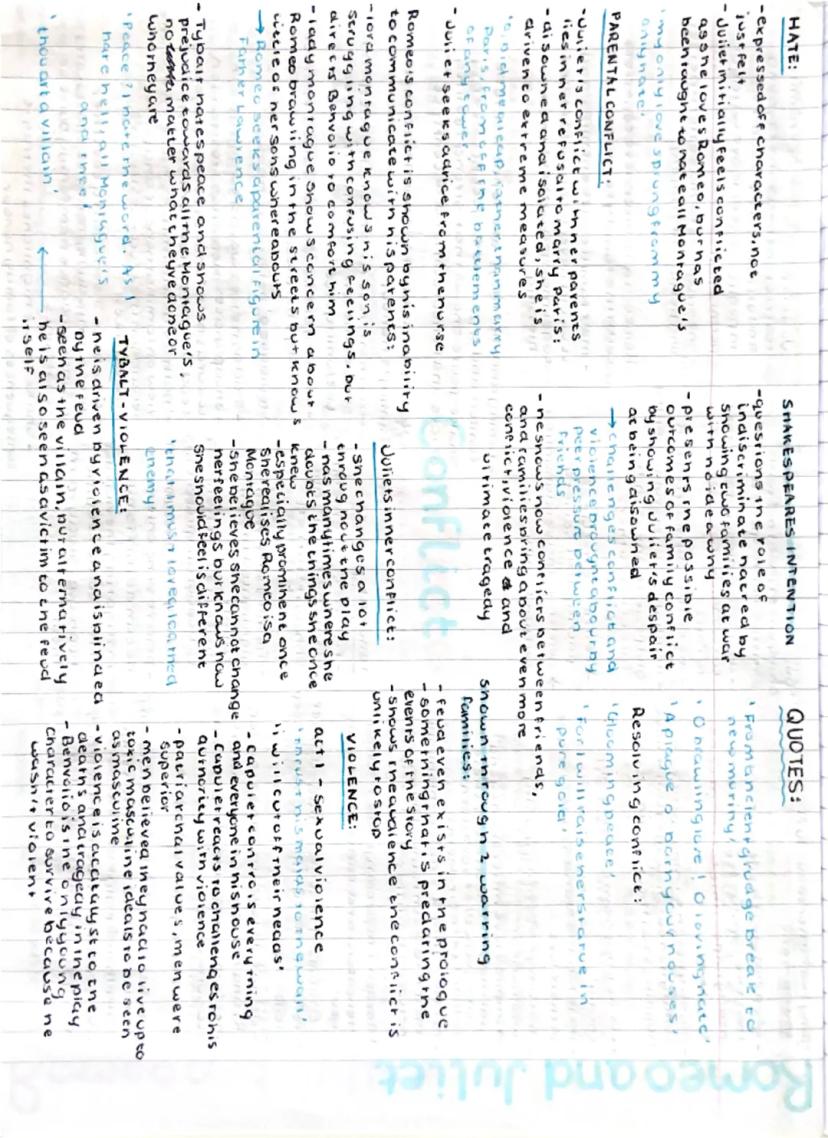 HATE:
- expressed off characters, not
just felt
- Juliet initially feels conflicted
as she loves Romeo, but has
been taught to hate all Montague's
'my only love sprung from my
only hate'
PARENTAL CONFLICT:
- Juliet's conflict with her parents
lies in her refusal to marry Paris:
- disowned and isolated, she is
driven to extreme measures
'o, bid me leap, rather than marry
Paris, from off the battlements
of any tower'
- Juliet seeks advice from the nurse
Romeo's conflict is shown by his inability
to communicate with his parents:
- lord montague knows his son is
struggling with confusing feelings, but
directs Benvolio to comfort him
- lady montague shows concern about
Romeo brawling in the streets but knows
little of her sons whereabouts
→ Romeo seeks a parental figure in
Father Lawrence
- Tybalt hates peace and shows
prejudice towards all the Montague's,
no matter what they've done or
who they are
'Peace? I hate the word. As I
hate hell, all Montague's
and thee'
'thou art a villain'
SHAKESPEARES INTENTION
- questions the role of
indiscriminate hatred by
showing two families at war
with no idea why
- presents the possible
outcomes of family conflict
by showing Juliet's despair
at being disowned
→ challenges conflict and
violence brought about by
peer pressure between
friends
- he shows how conflicts between friends,
and families bring about even more
conflict, violence and
ultimate tragedy
Conflict
Juliets inner conflict:
- she changes a lot
throughout the play
- has many times where she
doubts the things she once
knew
- especially prominent once
she realises Romeo is a
Montague
- she believes she cannot change
her feelings but knows how
she should feel is different
'that I must love a loathed
enemy'
TYBALT - VIOLENCE:
- he is driven by violence and is blinded
by the feud
- seen as the villain, but alternatively
he is also seen as a victim to the feud
itself
QUOTES:
'From ancient grudge break to
new mutiny'
'O brawling love! O loving hate'
'A plague o' both your houses'
Resolving conflict:
'glooming peace'
'For I will raise her statue in
pure gold'
shown through 2 warring
families:
- feud even exists in the prologue
- something that is predating the
events of the story
- shows the audience the conflict is
unlikely to stop
VIOLENCE:
act 1 - sexual violence
'thrust his maids to the wall'
'i will cut off their heads'
- Capulet controls everything
and everyone in his house
- Capulet reacts to challenges to his
authority with violence
- patriarchal values, men were
superior
- men believed they had to live up to
toxic masculine ideals to be seen
as masculine
- violence is a catalyst to the
deaths and tragedy in the play
- Benvolio is the only young
character to survive because he
wasn't violent
Romeo and Juliet